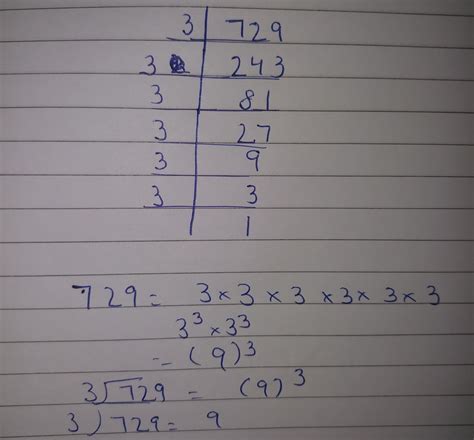 3 | 729
3 | 243
3 | 81
3 | 27
3 | 9
3 | 3
| 1
729 = 3 × 3 × 3 × 3 × 3 × 3
3³ × 3³
= (9)³
3√729 = (9)³
3) 729 = 9